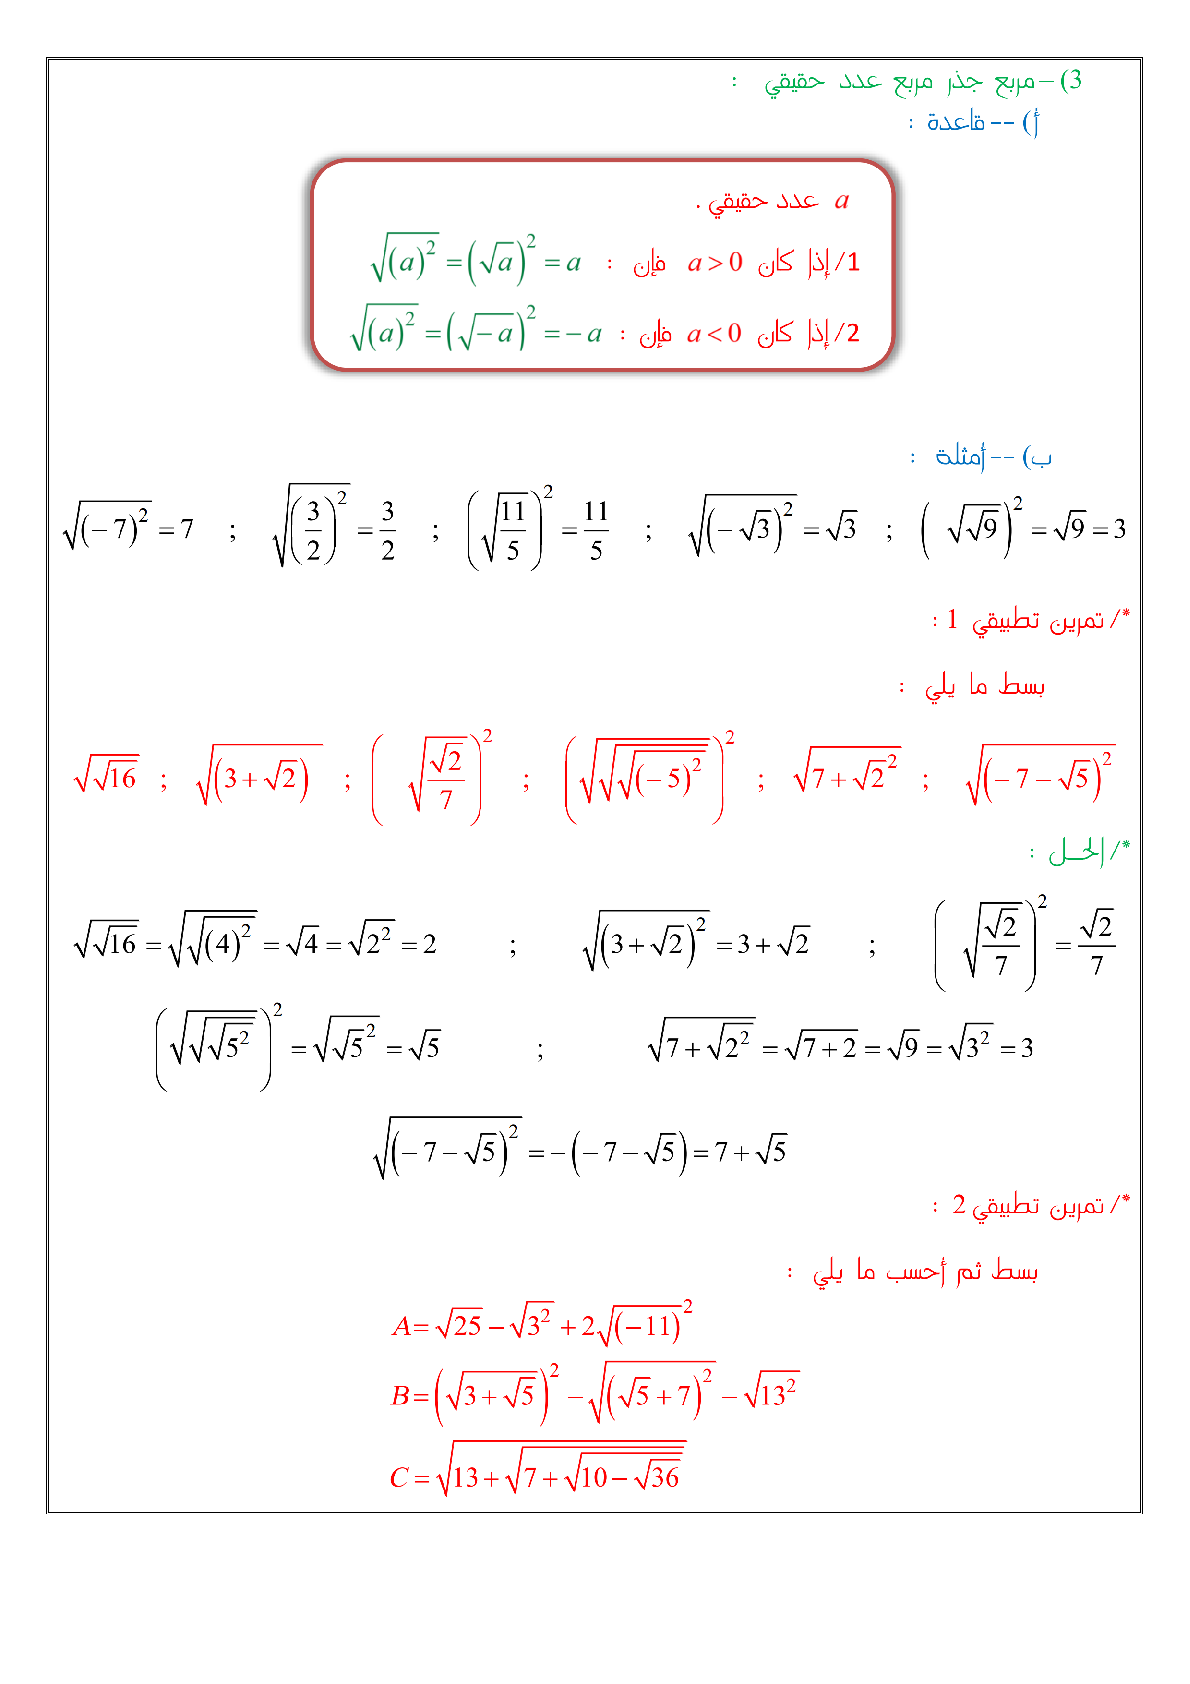 3) – مربع جذر مربع عدد حقيقي :
أ) -- قاعدة :
a عدد حقيقي .
1/ إذا كان a > 0 فإن : √(a)² = (√a)² = a
2/ إذا كان a < 0 فإن : √(a)² = (√−a)² = −a
ب) -- أمثلة :
√(−7)² = 7 ; √(3/2)² = 3/2 ; (√(11/5))² = 11/5 ; √(−√3)² = √3 ; (√√9)² = √9 = 3
*/ تمرين تطبيقي 1 :
بسط ما يلي :
√√16 ; √(3+√2) ; (√(√2/7))² ; (√√√(−5)²)² ; √(7+√2²) ; √(−7−√5)²
*/ الحــل :
√√16 = √√(4)² = √4 = √2² = 2 ; √(3+√2)² = 3+√2 ; (√(√2/7))² = √2/7
(√√√5²)² = √√5² = √5 ; √(7+√2²) = √(7+2) = √9 = √3² = 3
√(−7−√5)² = −(−7−√5) = 7+√5
*/ تمرين تطبيقي 2 :
بسط ثم أحسب ما يلي :
A = √25 − √3² + 2√(−11)²
B = (√(3+√5))² − √(√5+7)² − √13²
C = √(13+√(7+√(10−√36)))